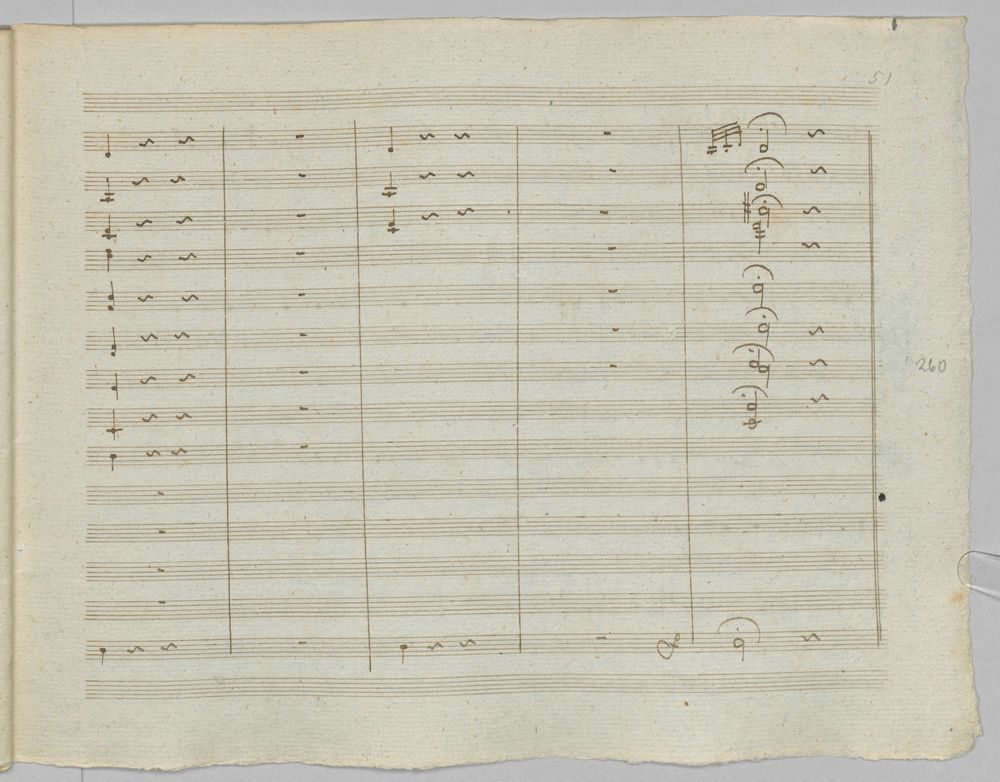 51
260